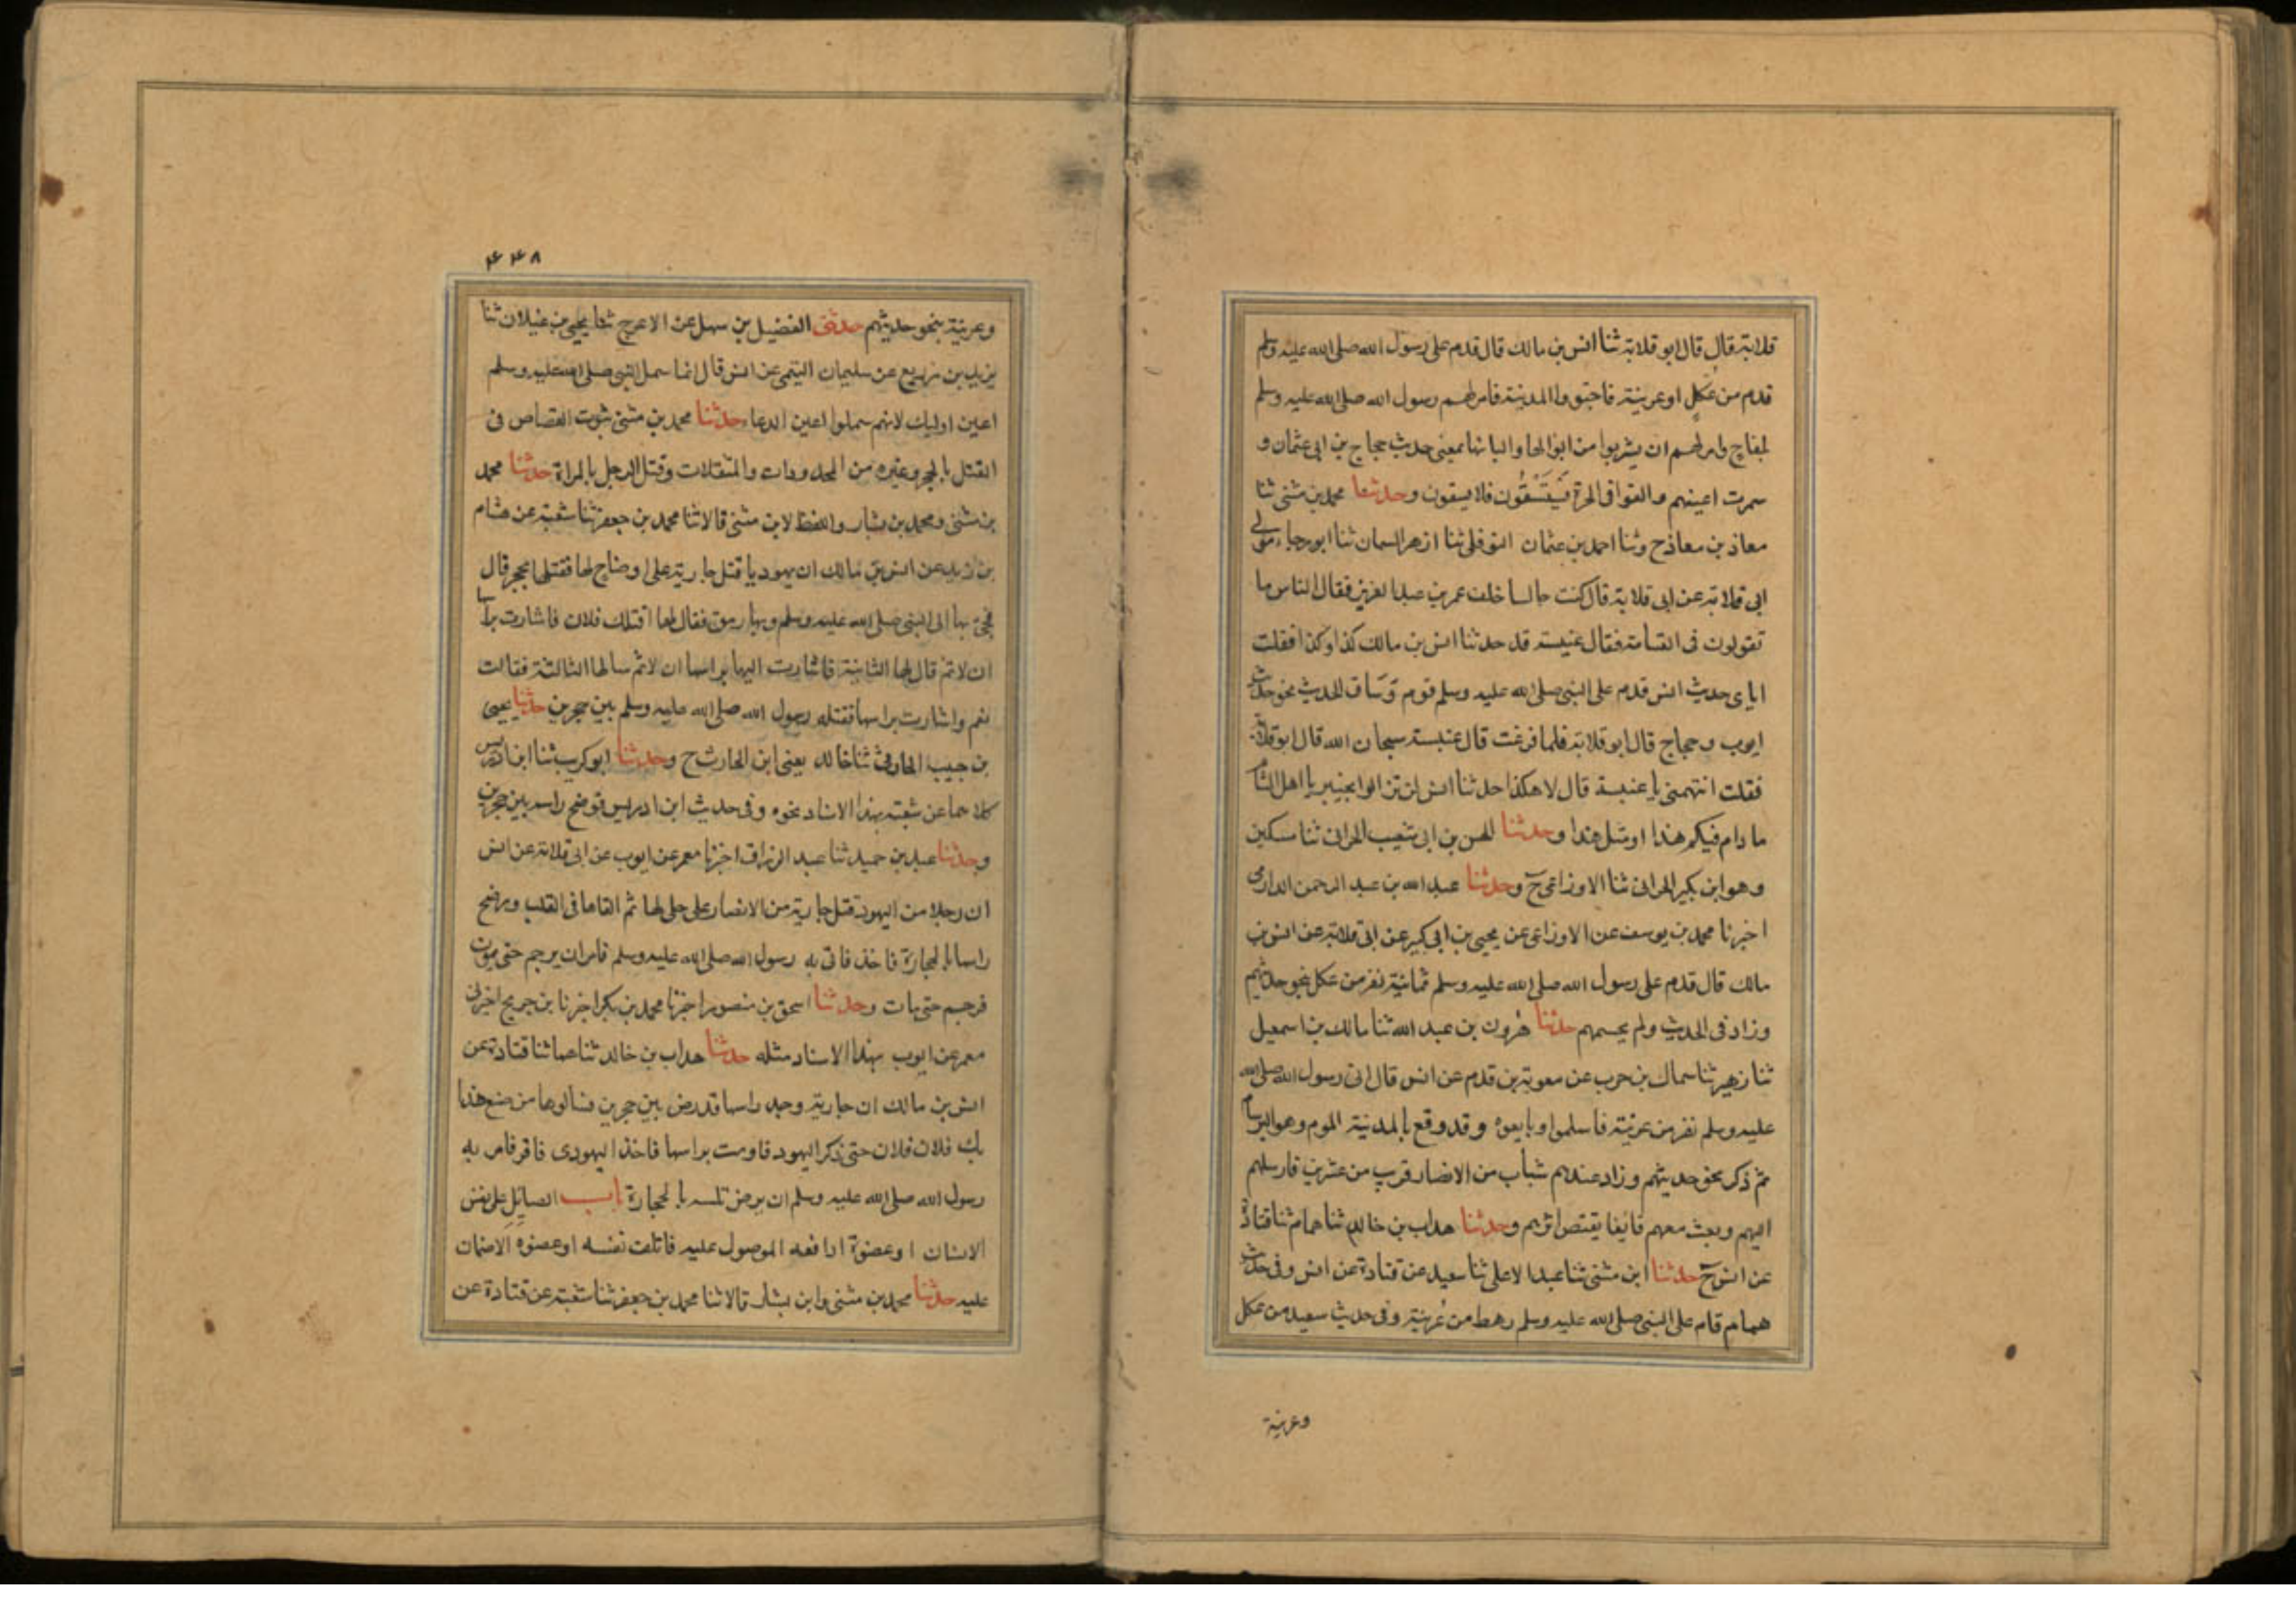 قلابة قال قال ابو قلابة ثنا انس بن مالك قال قدم على رسول الله صلى الله عليه وسلم
قدم من عكل او عرينة فاجتووا المدينة فامر لهم رسول الله صلى الله عليه وسلم
لبقاح وامرلهم ان يشربوا من ابوالها والبانها بمعنى حديث حجاج بن ابى عثمان و
سمرت اعينهم والقوا فى الحرة يَسْتَسْقُون فلا يسقون وحدثنا محمد بن مثنى ثنا
معاذ بن معاذ ح وثنا احمد بن عثمان النوفلى ثنا ازهر السمان ثنا ابو رجاء مولى
ابى قلابة عن ابى قلابة قال كنت جالسا خلف عمر بن عبد العزيز فقال الناس ما
تقولون فى القسامة فقال عنبسة قد حدثنا انس بن مالك كذا وكذا فقلت
اياى حديث انس قدم على النبى صلى الله عليه وسلم قوم وَسَاق الحديث نحو حديث
ايوب وحجاج قال ابو قلابة فلما فرغت قال عنبسة سبحان الله قال ابو قلابة
فقلت اتتهمنى يا عنبسة قال لا هكذا حدثنا انس لن تزالوا بخير يا اهل الشام
ما دام فيكم هذا او مثل هذا وحدثنا الحسن بن ابى شعيب الحرانى ثنا مسكين
وهو ابن بكير الحرانى ثنا الاوزاعى ح وحدثنا عبد الله بن عبد الرحمن الدارمى
اخبرنا محمد بن يوسف عن الاوزاعى عن يحيى بن ابى كبير عن ابى قلابة عن انس بن
مالك قال قدم على رسول الله صلى الله عليه وسلم ثمانية نفر من عكل بنحو حديثهم
وزاد فى الحديث ولم يحسمهم حدثنا هرون بن عبد الله ثنا مالك بن اسمعيل
ثنا زهير ثنا سماك بن حرب عن معوية بن قدم عن انس قال اتى رسول الله صلى الله
عليه وسلم نفر من عرينة فاسلموا وبايعوه وقد وقع بالمدينة الموم وهو البرسام
ثم ذكر نحو حديثهم وزاد عندهم شباب من الانصار قريب من عشرين فارسلهم
اليهم وبعث معهم قايفا يقتص اثرهم وحدثنا هداب بن خالد ثنا همام ثنا قتادة
عن انس ح حدثنا ابن مثنى ثنا عبد الاعلى ثنا سعيد عن قتادة عن انس وفى حديث
همام قام على النبى صلى الله عليه وسلم رهط من عُرينة وفى حديث سعيد من عكل
وعرينة
۴۴۸
وعرينة بنحو حديثهم حدثنى الفضيل بن سهل عن الاعرج ثنا يحيى بن غيلان ثنا
يزيد بن زريع عن سليمان التيمى عن انس قال انما سمل النبى صلى الله عليه وسلم
اعين اوليك لانهم سملوا اعين الرعاء حدثنا محمد بن مثنى ثبوت القصاص فى
القتل بالحجر وغيره من المحدودات والمثقلات وقتل الرجل بالمراة حدثنا محمد
بن مثنى ومحمد بن بشار واللفظ لابن مثنى قالا ثنا محمد بن جعفر ثنا شعبة عن هشام
بن زيد عن انس بن مالك ان يهوديا قتل جارية على اوضاح لها فقتلها بحجر قال
فجىء بها الى النبى صلى الله عليه وسلم وبها رمق فقال لها اقتلك فلان فاشارت براسها
ان لا ثم قال لها الثانية فاشارت اليها براسها ان لا ثم سالها الثالثة فقالت
نعم واشارت براسها فقتله رسول الله صلى الله عليه وسلم بين حجرين حدثنا يحيى
بن حبيب الحارثى ثنا خالد يعنى ابن الحارث ح وحدثنا ابو كريب ثنا ابن ادريس
كلاهما عن شعبة بهذا الاسناد نحوه وفى حديث ابن ادريس فوضخ راسه بين حجرين
وحدثنا عبد بن حميد ثنا عبد الرزاق اخبرنا معمر عن ايوب عن ابى قلابة عن انس
ان رجلا من اليهود قتل جارية من الانصار على حلى لها ثم القاها فى القلب ورضخ
راسها بالحجارة فاخذ فاتى به رسول الله صلى الله عليه وسلم فامر ان يرجم حتى يموت
فرجم حتى مات وحدثنا اسحق بن منصور اخبرنا محمد بن بكر اخبرنا بن جريج اخبرنى
معمر عن ايوب بهذا الاسناد مثله حدثنا هداب بن خالد ثنا همام ثنا قتادة عن
انس بن مالك ان جارية وجد راسها قد رض بين حجرين فسالوها من صنع هذا
بك فلان فلان حتى ذكر اليهود فاومت براسها فاخذ اليهودى فاقر فامر به
رسول الله صلى الله عليه وسلم ان يرض راسه بالحجارة باب الصايل على نفس
الانسان او عضوه اذا دفعه الموصول عليه فاتلف نفسه او عضوه لا ضمان
عليه حدثنا محمد بن مثنى وابن بشار قالا ثنا محمد بن جعفر ثنا شعبة عن قتادة عن